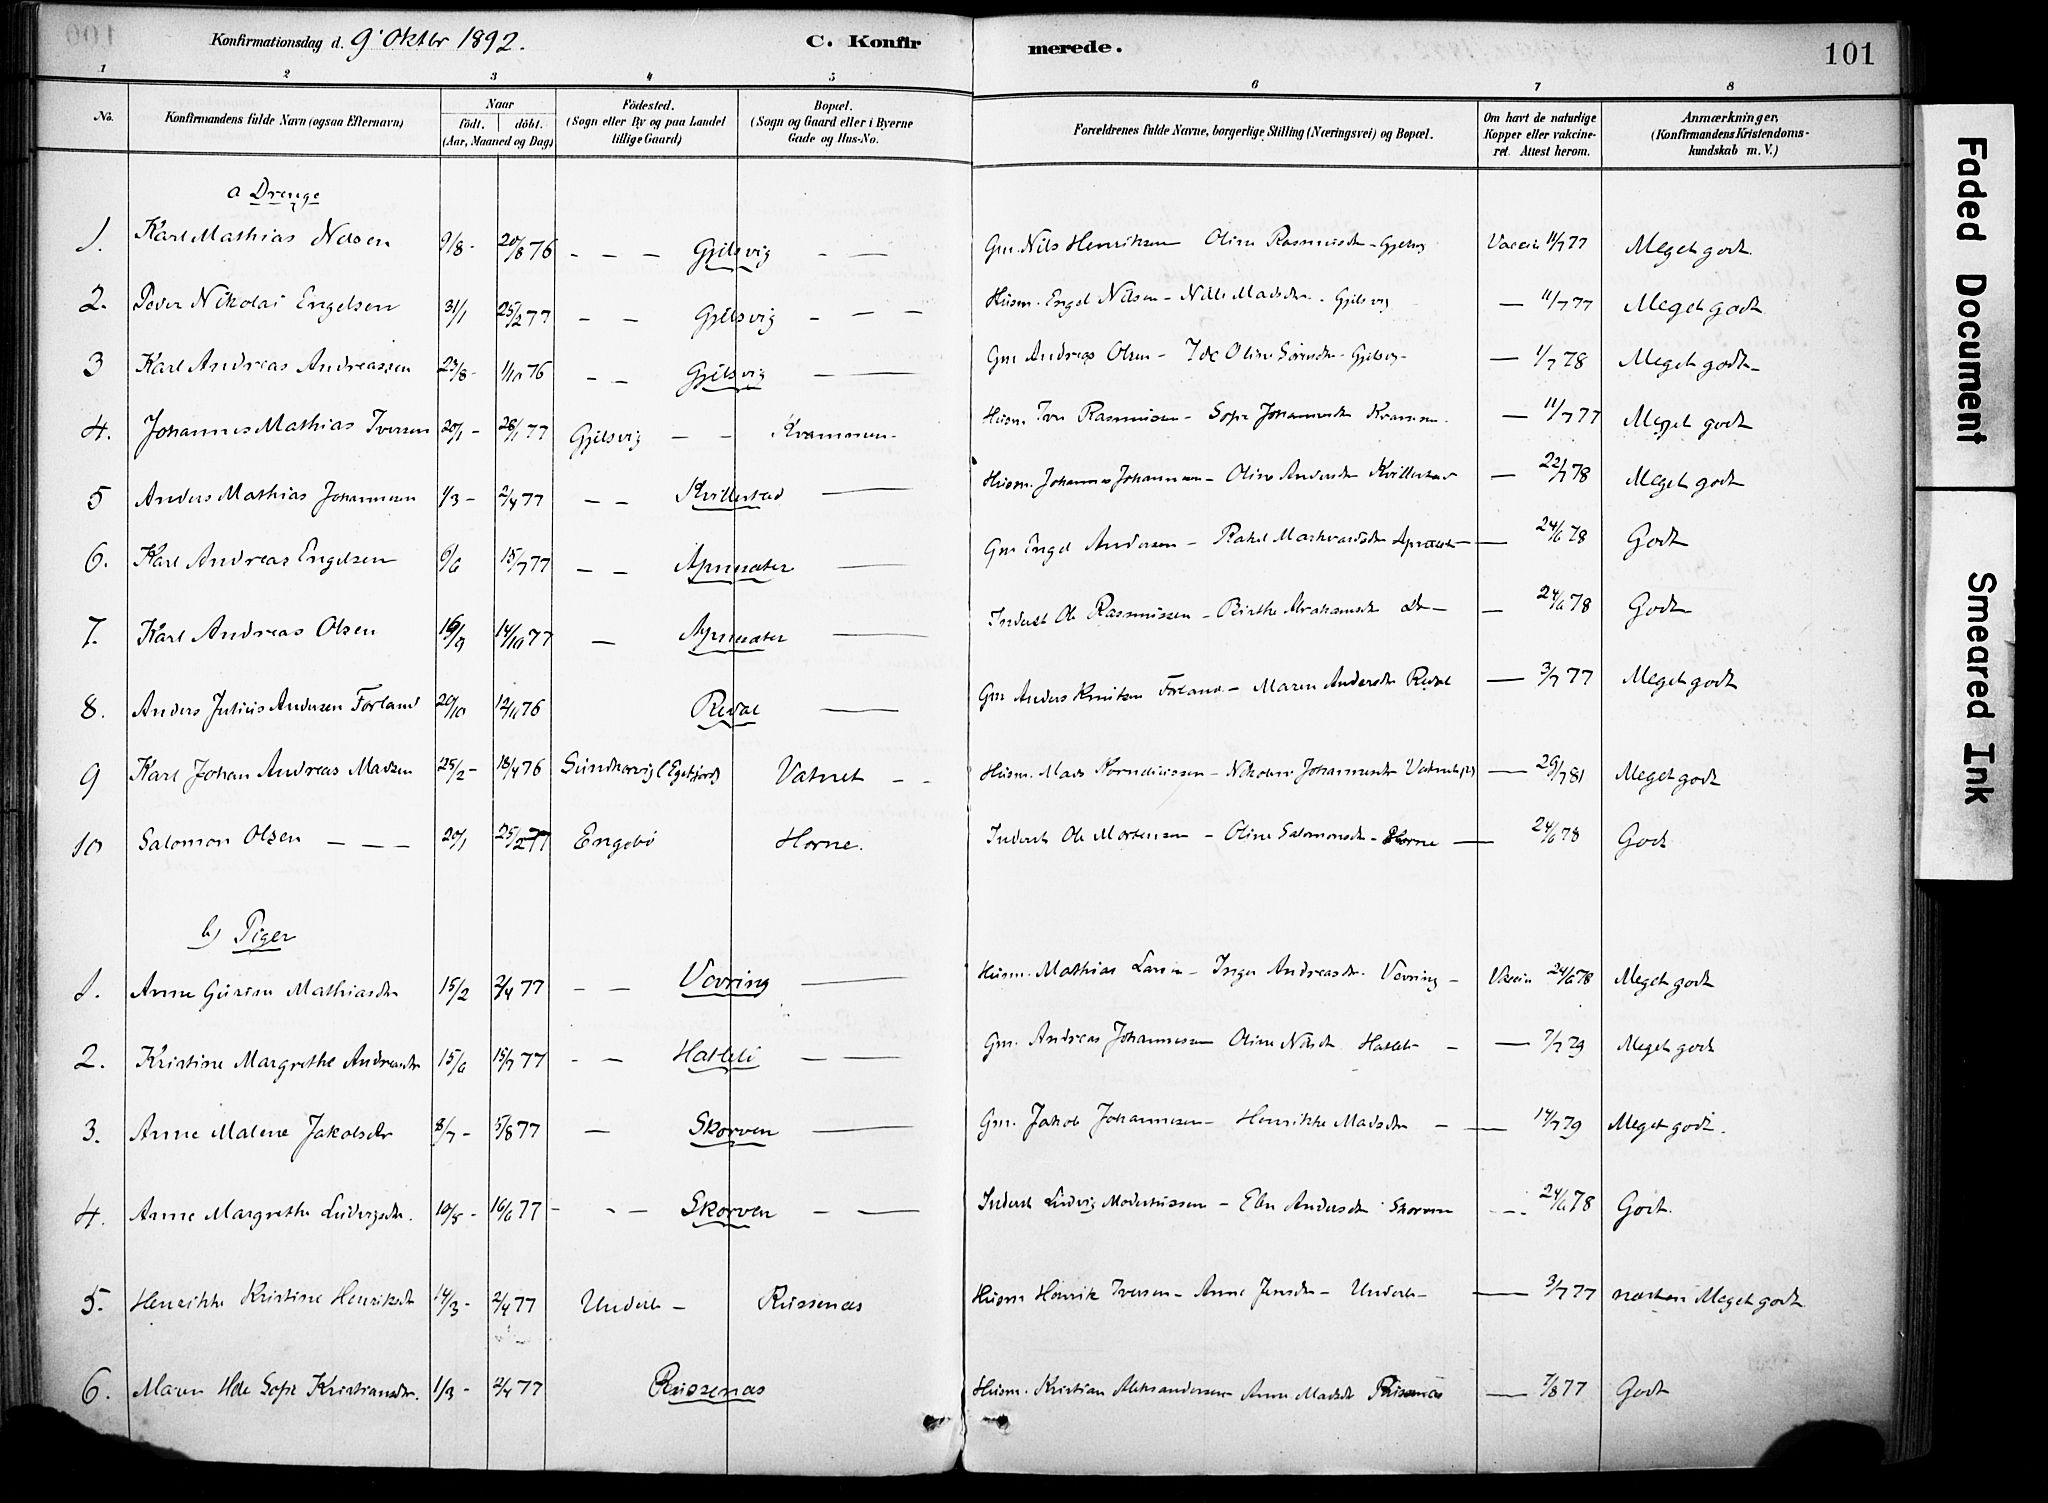 Konfirmationsdag d. 9' Oktbr 1892. C. Konfirmerede. 101
1 2 3 4 5 6 7 8
No. Konfirmandens fulde Navn (ogsaa Efternavn) Naar födt, döbt. (Aar, Maaned og Dag) Födested. (Sogn eller By og paa Landet tillige Gaard) Bopæl. (Sogn og Gaard eller i Byerne Gade og Hus-No. Forældrenes fulde Navne, borgerlige Stilling (Næringsvei) og Bopæl. Om havt de naturlige Kopper eller vakcineret. Attest herom. Anmærkninger, (Konfirmandens Kristendomskundskab m. V.)
a Drenge
1. Karl Mathias Nilsen 9/8 - 20/8 76 - - - Gjilsvig - — Gm. Nils Henriksen Oline Rasmusdtr - Gjelsvig Vaccin 11/7 77 Meget godt.
2. Peder Nikolai Engelsen 31/1 25/2 77 - - Gjilsvig - — — Husm. Engel Nilsen - Nille Madsdtr. - Gjilsvig — 11/7 77 Meget godt
3 Karl Andreas Andreassen 23/8 - 1/10 76 - - Gjilsvig — — Gm Andreas Olsen - Ide Oline Sörensdtr - Gjelsvig - — 1/7 78 Meget godt -
4. Johannes Mathias Iversen 20/1 - 28/1 77 Gjilsvig — - Kvammen - Husm. Iver Rasmussen - Sofie Johannesdtr Kvammen. — 11/7 77 Meget godt
5 Anders Mathias Johannesen 1/3 - 2/4 77 - - Kvillestad — Husm. Johannes Johannessen - Oline Andersdtr Kvillestad — 22/7 78 Meget godt
6. Karl Andreas Engelsen 9/6 15/7 77 - - Apnesæter — Gm Engel Andersen - Rakel Markvardsdtr Apnesæt - — 24/6 78 Godt
7. Karl Andreas Olsen 16/9 14/10 77 — Apnesæter — Inderst Ole Rasmussen - Birthe Abrahamsdtr Do - — 24/6 78 Godt
8. Anders Julius Andersen Förland 20/10 12/11 76 Redal — Gm Anders Knutsen Förland - Maren Andersdtr Redal — 3/7 77 Meget godt
9 Karl Johan Andreas Madsen 25/2 - 18/4 76 Sundhorvig (Eqefjord) Vatnet - - Husm. Mads Korneliussen - Nikoline Johannesdtr Vatnet — 29/7 81 Meget godt
10 Salomon Olsen — — — 20/1 25/2 77 Engebö Horne. Inderst Ole Mortensen - Oline Salomonsdtr - Horne — 24/6 78 Godt
b) Piger
1. Anne Gurine Mathiasdtr 15/2 2/4 77 - - Vevring — Husm. Mathias Larsen - Inger Andreasdtr. Vevring - Vaccin 24/6 78 Meget godt
2. Kristine Margrethe Andreasdtr 15/6 15/7 77 - - Hatleli — — Gm. Andreas Johannessen Oline Nilsdt Hatleli - — 7/7 79 Meget godt
3. Anne Malene Jakobsdtr 8/7 - 5/8 77 — Skorven — Gm. Jakob Johannesen - Henrikke Madsdtr - — 17/7 79 Meget godt.
4. Anne Margrethe Ludvigsdtr. 10/5 - 10/6 77 - - — Skorven - — Inderst Ludvig Modestussen - Elen Andersdtr Skorven - - - 24/6 78 Godt.
5. Henrikke Kristine Henriksdtr 14/3 - 2/4 77 Underl. - Russenæs Husm Henrik Iversen - Anne Jensdtr - Underl. - — 3/7 77 næsten Meget godt
6. Maren Sofie Kristiansdtr. 1/3 - 2/4 77 Russenæs Husm. Kristian Aleksandersen Anne Madsdt Russenæs — 7/8 77 Godt
Faded Document
Smeared Ink